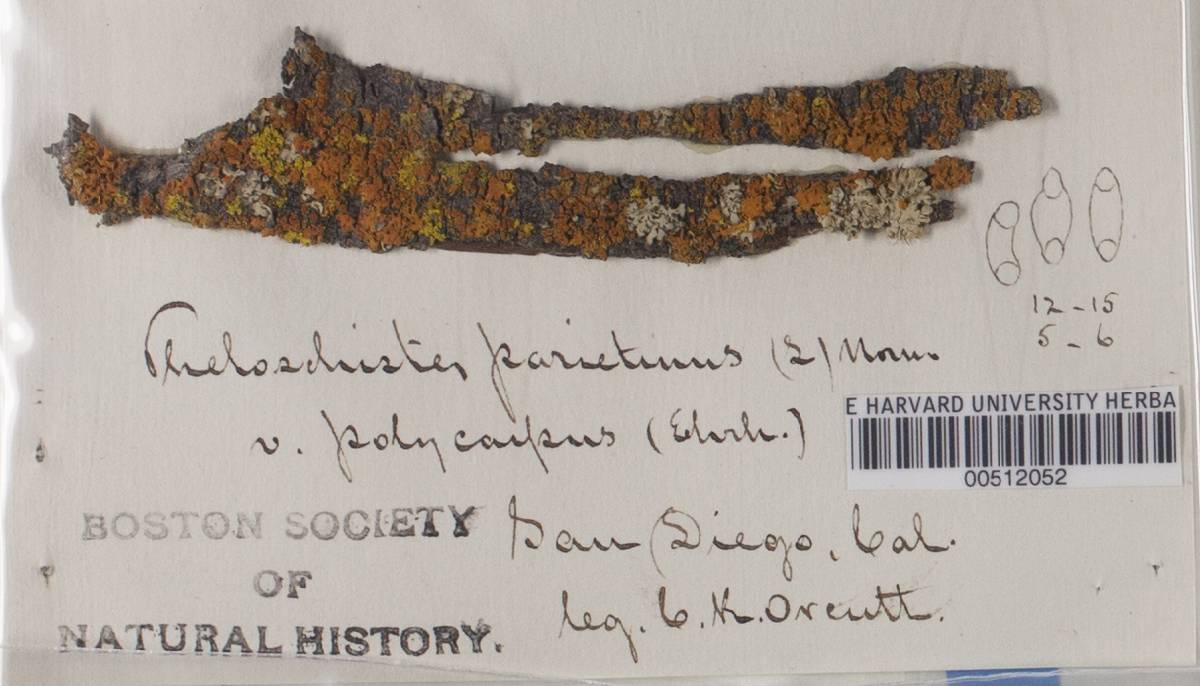 12-15
5-6
Theloschistes parietinus (L) Norm.
v. polycarpus (Ehrh.)
E HARVARD UNIVERSITY HERBA
00512052
BOSTON SOCIETY
OF
NATURAL HISTORY.
San Diego, Cal.
leg. C. R. Orcutt.